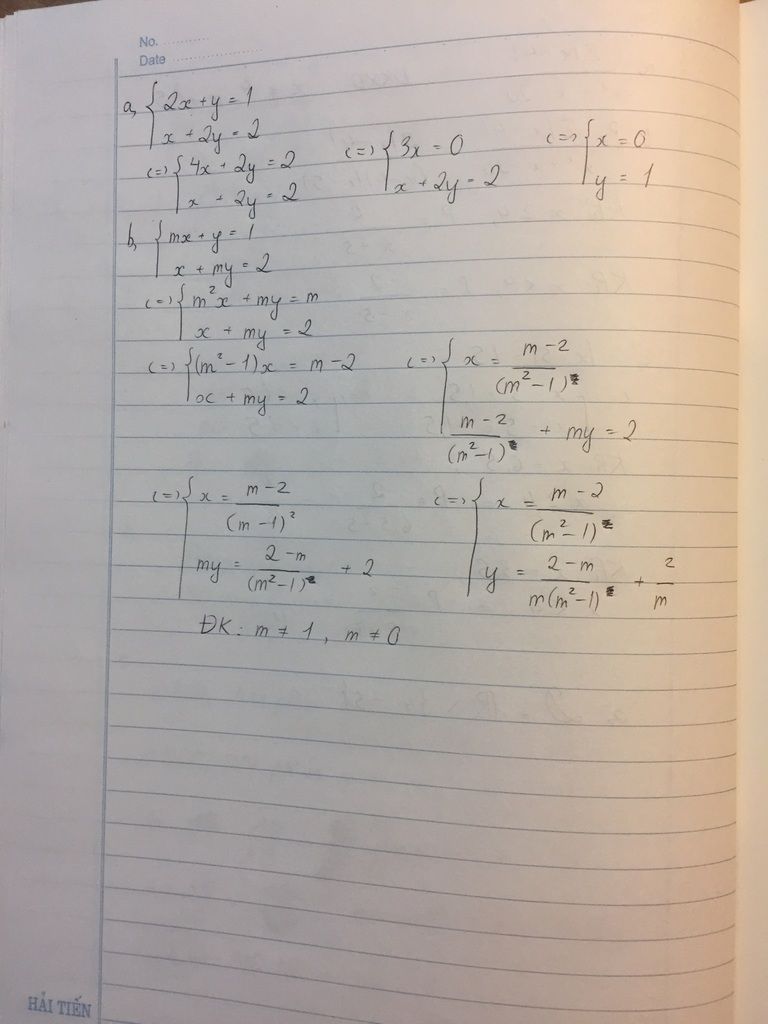 No. ............
Date .....................
a, { 2x + y = 1
x + 2y = 2
(=) { 4x + 2y = 2 (=) { 3x = 0 (=) { x = 0
x + 2y = 2 x + 2y = 2 y = 1
b, { mx + y = 1
x + my = 2
(=) { m²x + my = m
x + my = 2
(=) { (m² - 1)x = m - 2 (=) { x = (m - 2)/(m² - 1)
x + my = 2 (m - 2)/(m² - 1) + my = 2
(=) { x = (m - 2)/(m - 1)² (=) { x = (m - 2)/(m² - 1)
my = (2 - m)/(m² - 1) + 2 y = (2 - m)/(m(m² - 1)) + 2/m
ĐK: m ≠ 1, m ≠ 0
HẢI TIẾN